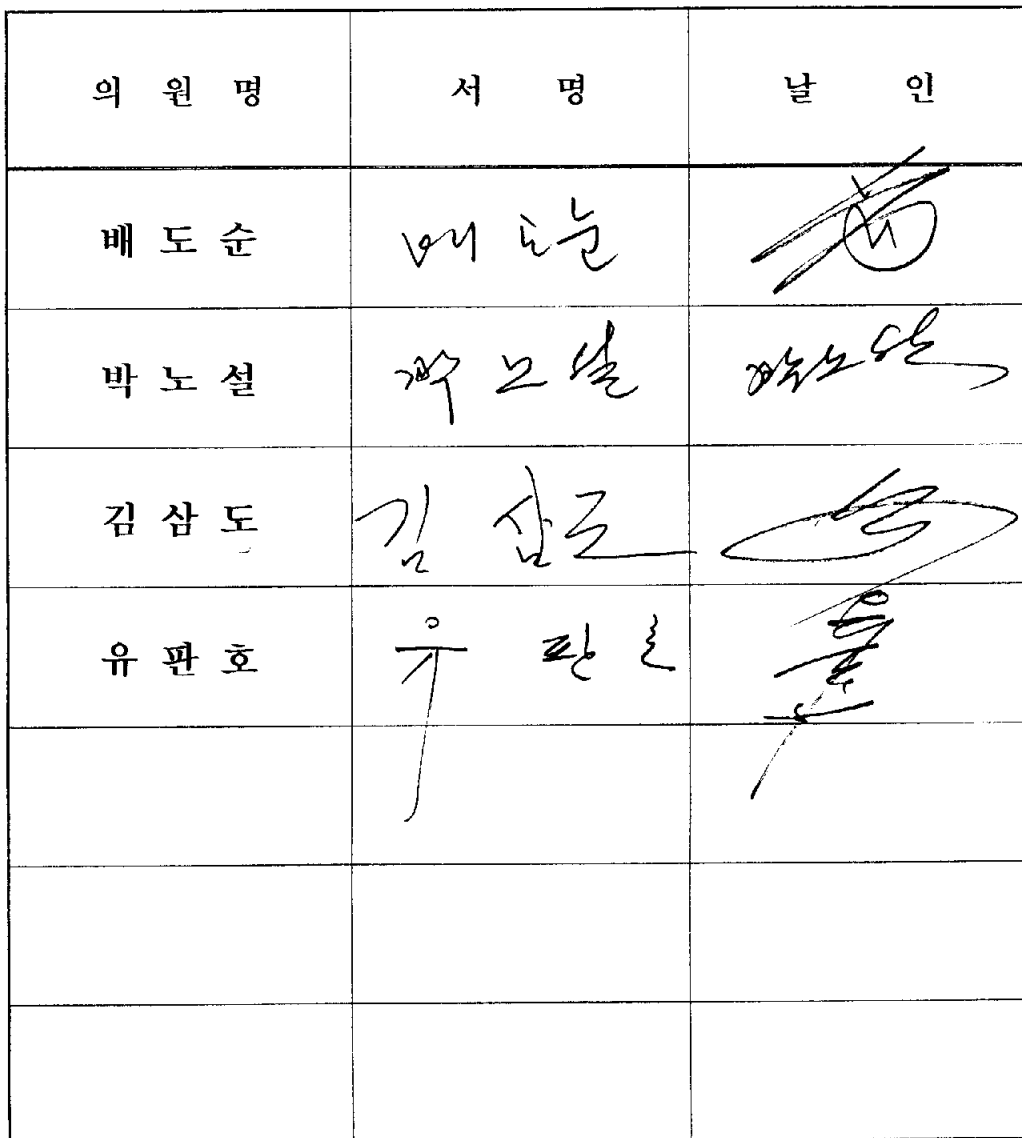 의 원 명 서 명 날 인
배 도 순 배 도순
박 노 설 박 노 설 박노설
김 삼 도 김 삼도
유 판 호 유 판호